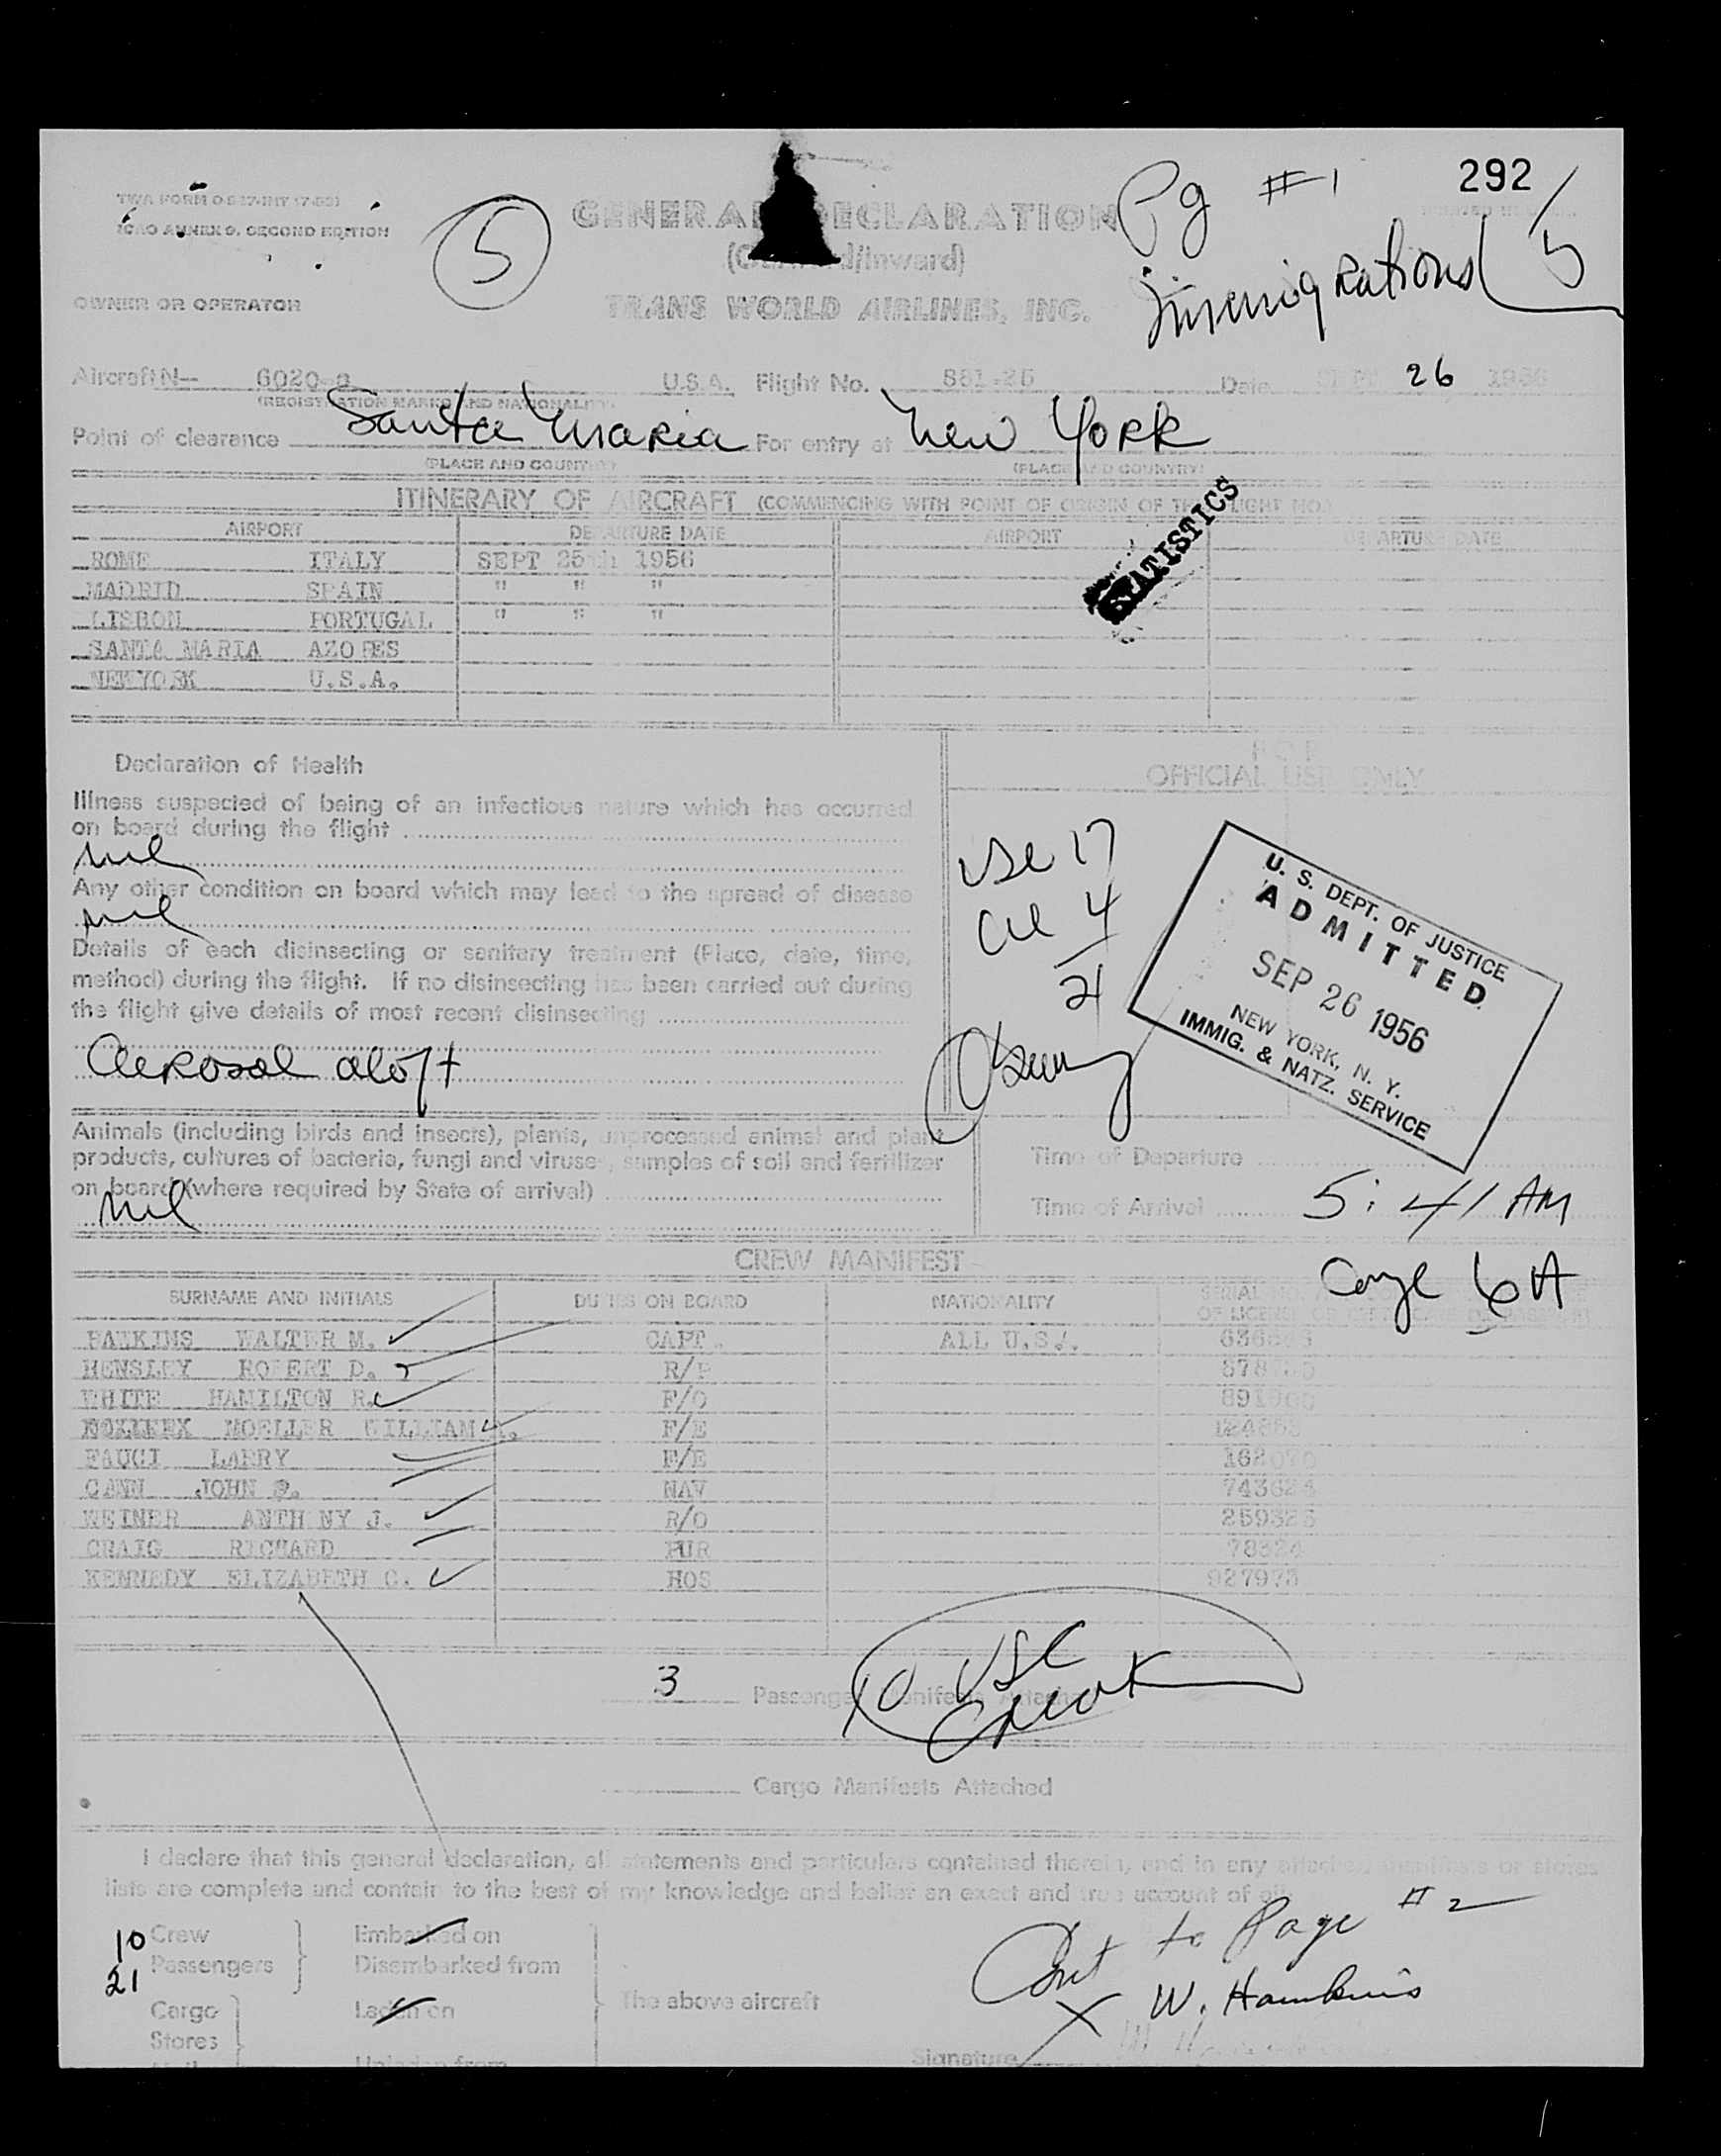 292
Pg #1
TWA FORM
ICAO ANNEX 9, SECOND EDITION
5
GENERAL DECLARATION
(Outward/Inward)
Immigrations 5
OWNER OR OPERATOR
TRANS WORLD AIRLINES, INC.
Aircraft N-- 6020-C U.S.A. Flight No. 881-25 Date SEPT 26 1956
(REGISTRATION MARKS AND NATIONALITY)
Point of clearance Santa Maria For entry at New York
(PLACE AND COUNTRY) (PLACE AND COUNTRY)
STATISTICS
ITINERARY OF AIRCRAFT (COMMENCING WITH POINT OF ORIGIN OF THE FLIGHT NO.)
AIRPORT DEPARTURE DATE AIRPORT DEPARTURE DATE
ROME ITALY SEPT 25th 1956
MADRID SPAIN " " "
LISBON PORTUGAL " " "
SANTA MARIA AZORES
NEW YORK U.S.A.
Declaration of Health
FOR
OFFICIAL USE ONLY
Illness suspected of being of an infectious nature which has occurred
on board during the flight
nil
Any other condition on board which may lead to the spread of disease
nil
Details of each disinsecting or sanitary treatment (Place, date, time,
method) during the flight. If no disinsecting has been carried out during
the flight give details of most recent disinsecting
Aerosol aloft
USC 17
4
21
U. S. DEPT. OF JUSTICE
ADMITTED
SEP 26 1956
NEW YORK, N. Y.
IMMIG. & NATZ. SERVICE
Animals (including birds and insects), plants, unprocessed animal and plant
products, cultures of bacteria, fungi and viruses, samples of soil and fertilizer
on board (where required by State of arrival)
nil
Time of Departure
Time of Arrival 5:41 AM
6A
CREW MANIFEST
SURNAME AND INITIALS DUTIES ON BOARD NATIONALITY SERIAL
OF LICENSE
WALTER M. CAPT. ALL U.S.
HENSLEY ROBERT D. R/P
WHITE HAMILTON R. F/O
MOELLER WILLIAM F/E
FAUCI LARRY F/E
CANN JOHN NAV
WEINER ANTHONY J. R/O
CRAIG RICHARD PUR
KENNEDY ELIZABETH C. HOS 927973
3 Passenger Manifests Attached
10 USC
Cargo Manifests Attached
I declare that this general declaration, all statements and particulars contained therein, and in any attached manifests or stores
lists are complete and contain to the best of my knowledge and belief an exact and true account of all
10 Crew
21 Passengers
Embarked on
Disembarked from
Cargo
Stores
Laden on
The above aircraft
Cont to Page #2
X W. Hawkins
Signature